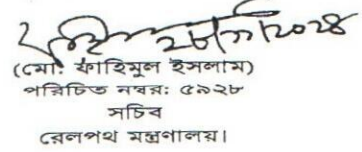 ২৮/১১/২০২৪
(মো: ফাহিমুল ইসলাম)
পরিচিত নম্বর: ৫৯২৮
সচিব
রেলপথ মন্ত্রণালয়।